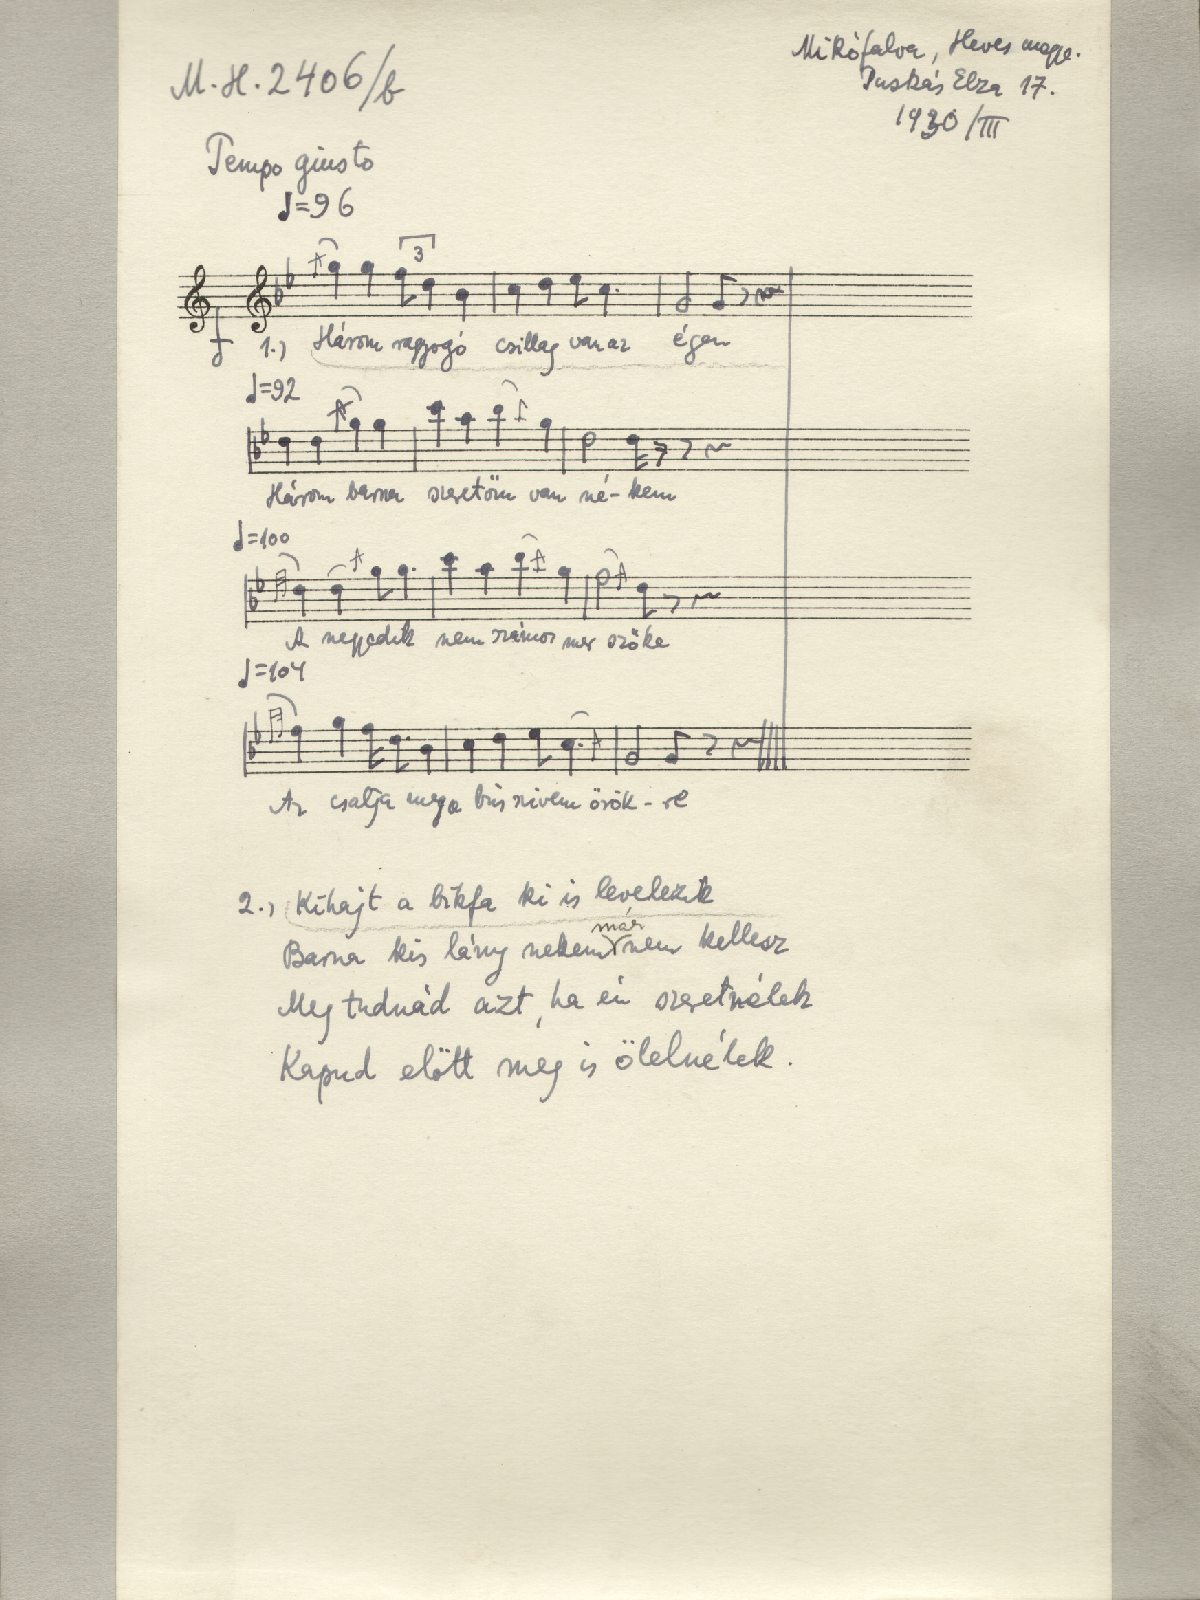 M.H.2406/b
Mikófalva, Heves megye.
Puskás Elza 17.
1930/III
Tempo giusto
♩=96
3
1.) Három ragyogó csillag van az égen
♩=92
Három barna szeretőm van né-kem
♩=100
A negyedik nem számos mer szőke
♩=104
Az csalja meg a bús szivem örök-re
2.) Kihajt a bikfa ki is levelezik
már
Barna kis lány nekem nem kellesz
Meg tudnád azt, ha én szeretnélek
Kapud előtt meg is ölelnélek.